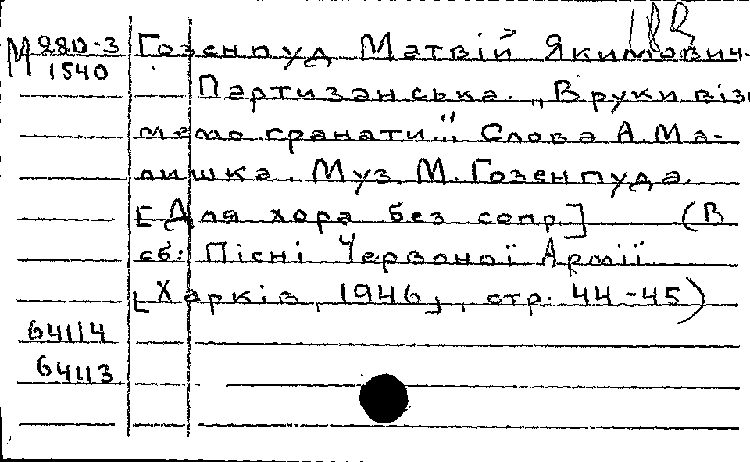 М 880-3 Гозенпуд Матвій Якимович.
1540
Партизанська. „В руки візь
мемо гранати..." Слова А. Ма-
лишка. Муз. М. Гозенпуда.
[Для хора без сопр.] (В
сб: Пісні Червоної Армії
[Харків, 1946], стр. 44-45)
64114
64113